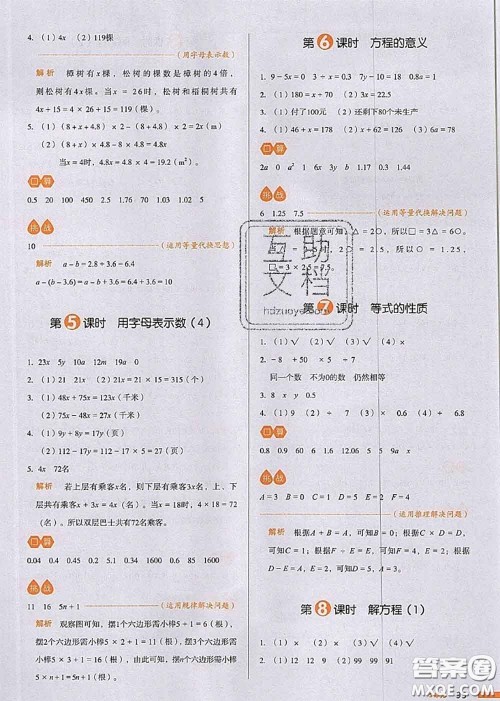 4. (1) 4x (2) 119棵
(用字母表示数)
解析 樟树有x棵，松树的棵数是樟树的4倍，
则松树有4x棵。当x = 26时，松树和梧桐树共有
4x + 15 = 4 × 26 + 15 = 119(棵)。
5. (1) (8 + x + 4.8) × 2 = (8 + x + 4.8) × 2
(2) (8 + x) × 4.8 - 8 × 4.8 = 4.8x
当x = 4时，4.8x = 4.8 × 4 = 19.2(m²)。
口算
0.5 20 100 0.5 1.76 70 1.03 1.02 5
挑战
10
(运用等量代换思想)
解析 a - b = 2.8 + 3.6 = 6.4
a - (b - 3.6) = a - b + 3.6 = 6.4 + 3.6 = 10
第5课时 用字母表示数(4)
1. 23x 5y 10a 12m 19a 0 15x
2. (1) 21 21x (2) 21x = 21 × 15 = 315(个)
3. (1) 48x + 75x = 123x(千米)
(2) 75x - 48x = 27x(千米)
4. (1) 9y + 8y = 17y(页)
(2) 112 - 17y = 112 - 17 × 5 = 27(页)
5. 4x 72名
解析 若上层有乘客x名，则下层有乘客3x名，共有
乘客x + 3x = 4x(名)。当x = 18时，4x = 4 × 18 =
72(名)，所以双层巴士共有72名乘客。
口算
0.04 0.4 2 0.45 5.1 30 0.34 1.35 0.6 1600
挑战
11 16 5n + 1
(运用规律解决问题)
解析 观察图可知，摆1个六边形需小棒5 + 1 = 6(根)，
摆2个六边形需小棒5 × 2 + 1 = 11(根)，摆3个六边
形需小棒5 × 3 + 1 = 16(根)，由此可知，摆n个六边
形需小棒5 × n + 1 = 5n + 1(根)。
第6课时 方程的意义
1. 9 - 5x = 0 3 + y = 73 y - 18 = 10 0.8a = 1
2. (1) 180 = x + 70 (2) 3x = 22.5
3. (1) 付了100元 (2) 还剩下80个未生产
4. (1) 200 = 50 + 3x (2) 2x = 46 (3) x + 62 = 126
口算
2a 0 a² 1 6x 3y b 1.7 0.3 1.44
挑战
6 1.25 7.5
(运用等量代换解决问题)
第7课时 等式的性质
1. (1) √ (3) √
2. - 8 + 50 × 5 ÷ 6
同一个数 不为0的数 仍然相等
4. (1) 9 (2) ÷ 7 (3) × 0.6 (4) - 6.8
口算
挑战
A = 3 B = 0 C = 2 D = 8 E = 4 F = 1
(运用推理解决问题)
解析 根据A + B = A，可知B = 0；根据C × D ÷ D =
2，可知C = 2；根据F ÷ E = E，可知F = 1；根据
D - E = E，可知D = 2E；根据C × E = D，可知
第8课时 解方程(1)
互助
文档
hdzuoye.com
答案圈
MXQE.COM